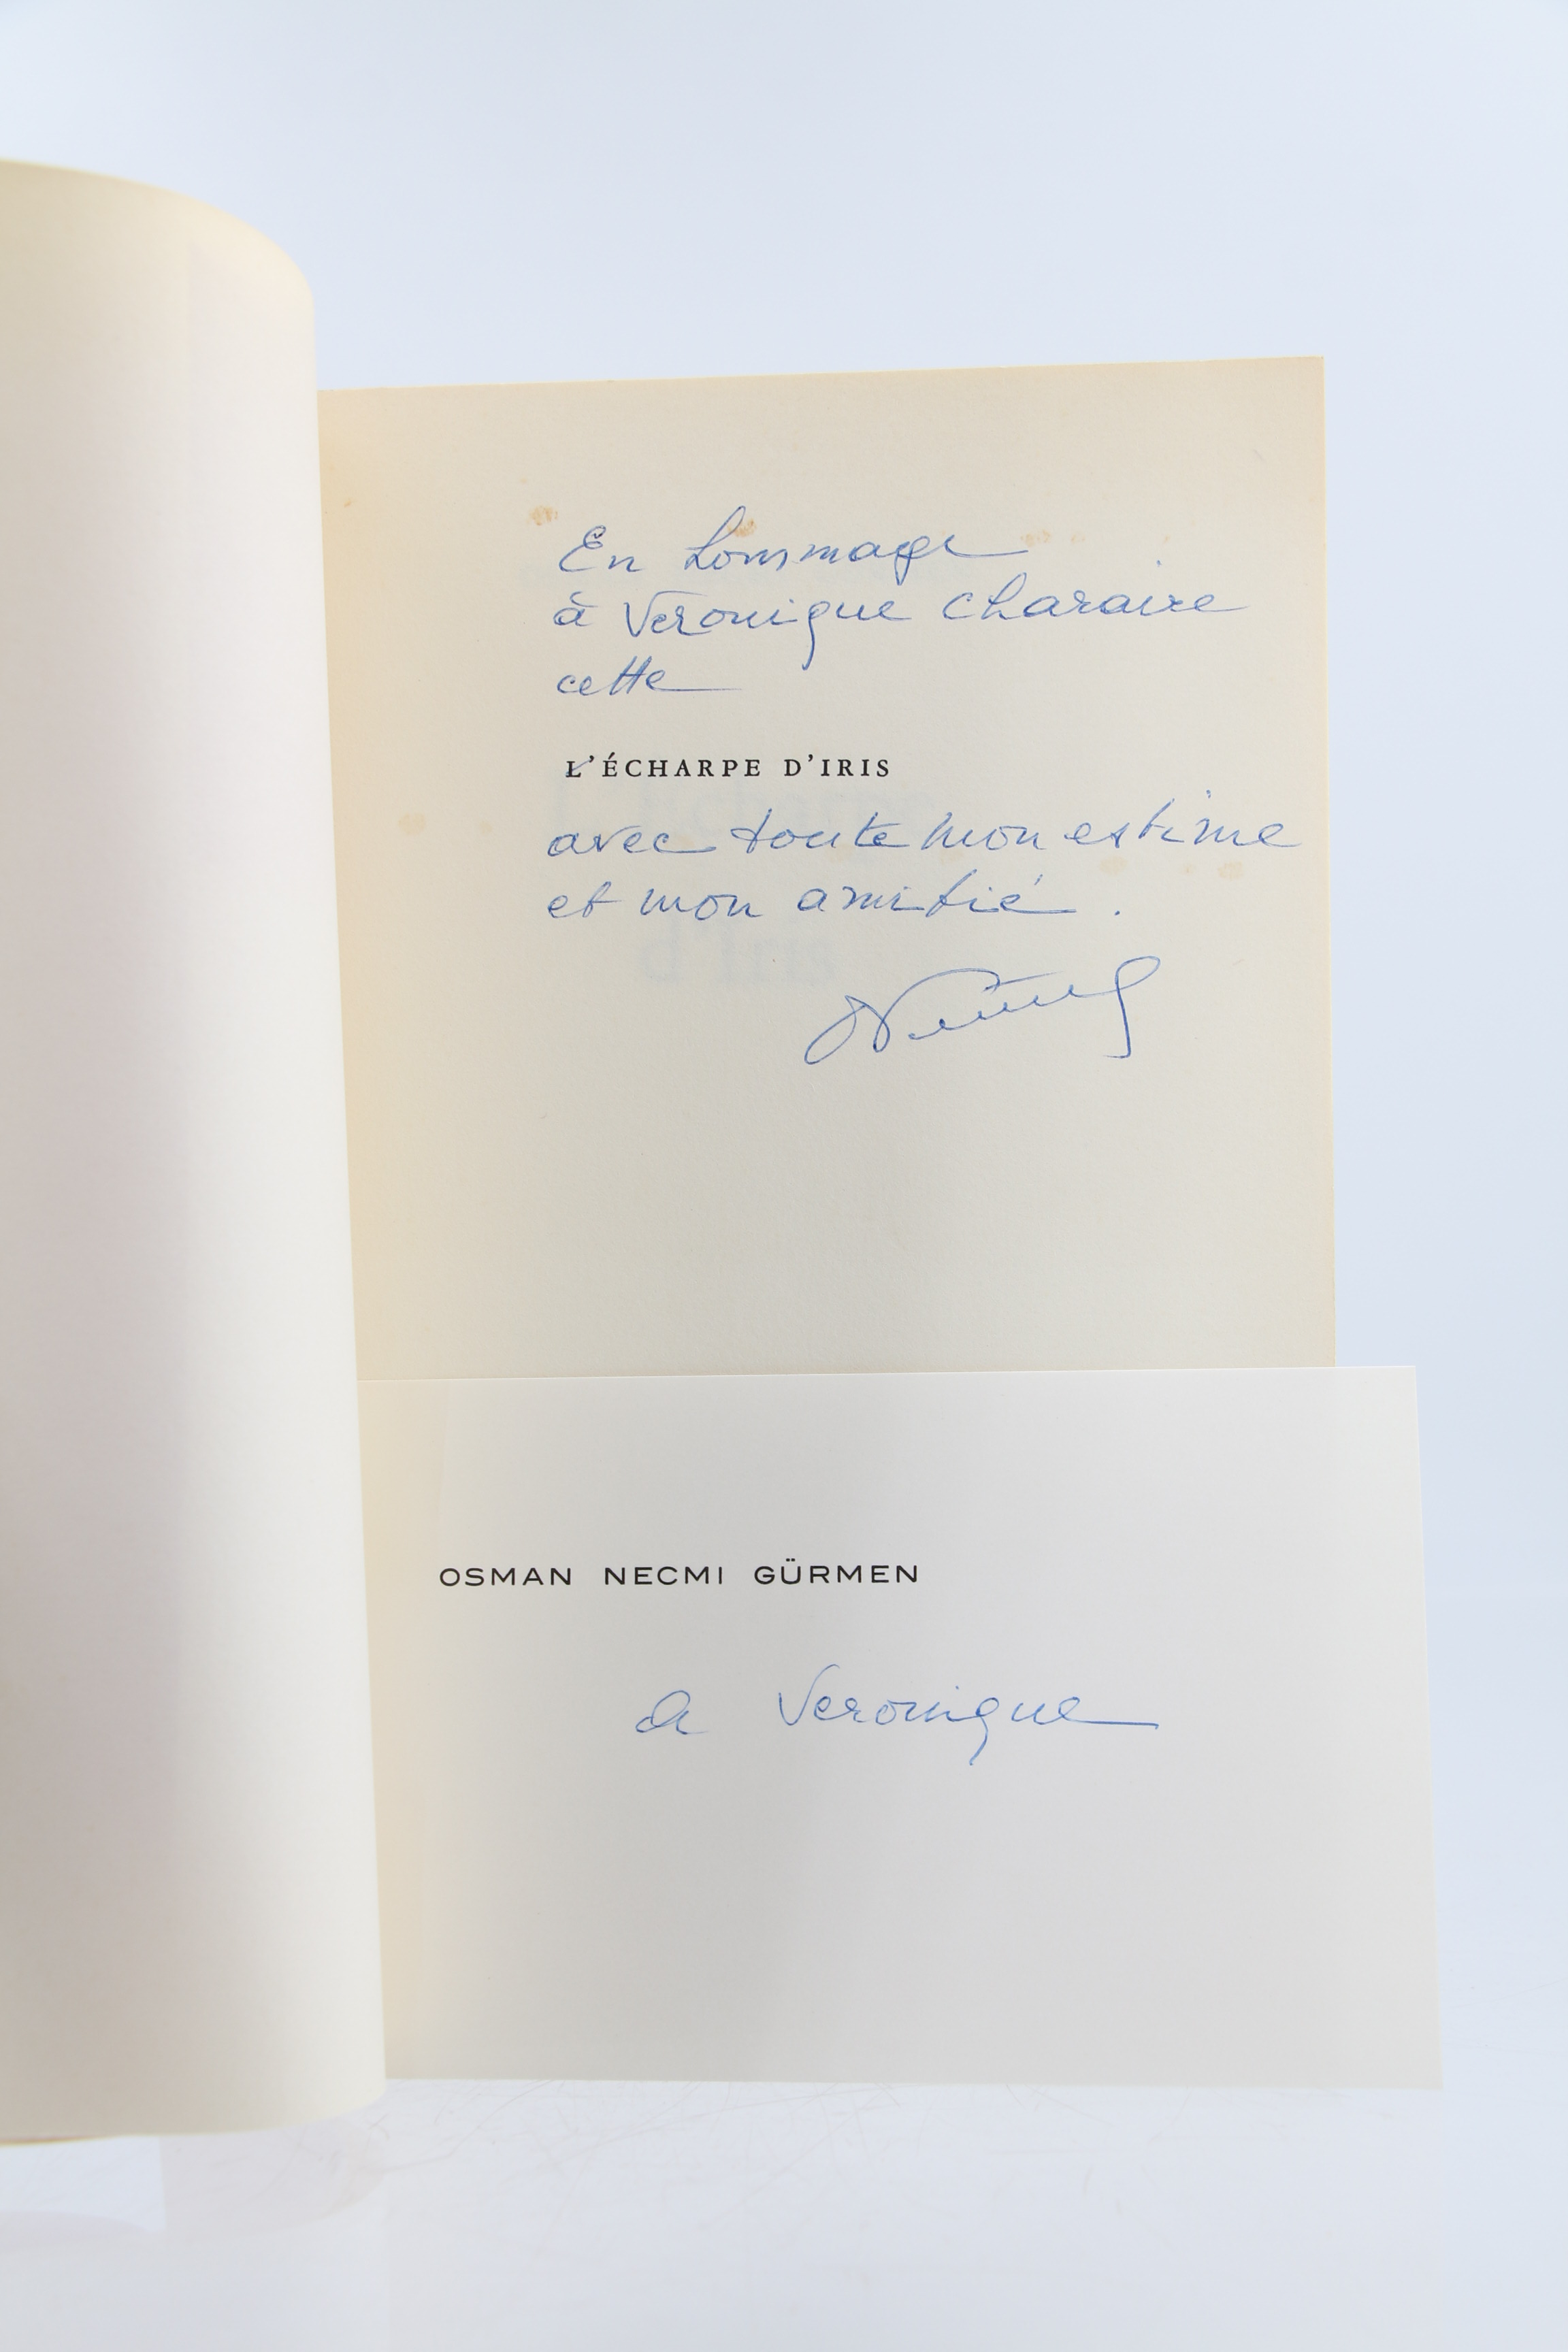 En hommage
à Veronique Charaire
cette
L'ÉCHARPE D'IRIS
avec toute mon estime
et mon amitié.
OSMAN NECMI GÜRMEN
a Veronique